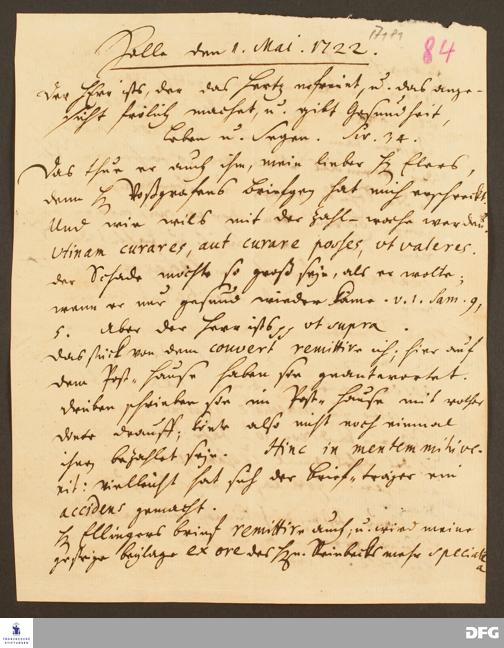 Halle den 1. Mai. 1722.
84
Der Herr ists, der das Hertz erfreuet, u. das ange-
sicht frölich machet, u. gibt Gesundheit,
Leben u. Segen. Sir. 34.
Das thue er auch ihm, mein lieber H. Elers,
denn H. Voßgrafens briefgen hat mich erschreckt.
Und wie wills mit der Zahl-woche werden.
Utinam curares, aut curare posses, ut valeres.
der Schade möchte so groß seyn, als er wolte;
wenn er nur gesund wieder käme. v. 1. Sam. 9,
5. Aber der Herr ists pp ut supra.
Das stück von dem couvert remittire ich; hier auf
dem Post-Hause haben sie geantwortet.
drüben schrieben sie im Post-Hause mit rother
dinte drauff; könte also nicht noch einmal
ihnen bezahlet seyn. Hinc in mentem mihi ve-
nit: vielleicht hat sich der brief-träger ein
accidens gemacht.
H. Ellingers brief remittire auch, u. wird meine
gestrige beylage ex ore des Hn. Steinbecks mehr specialia
FRANCKESCHE STIFTUNGEN
DFG